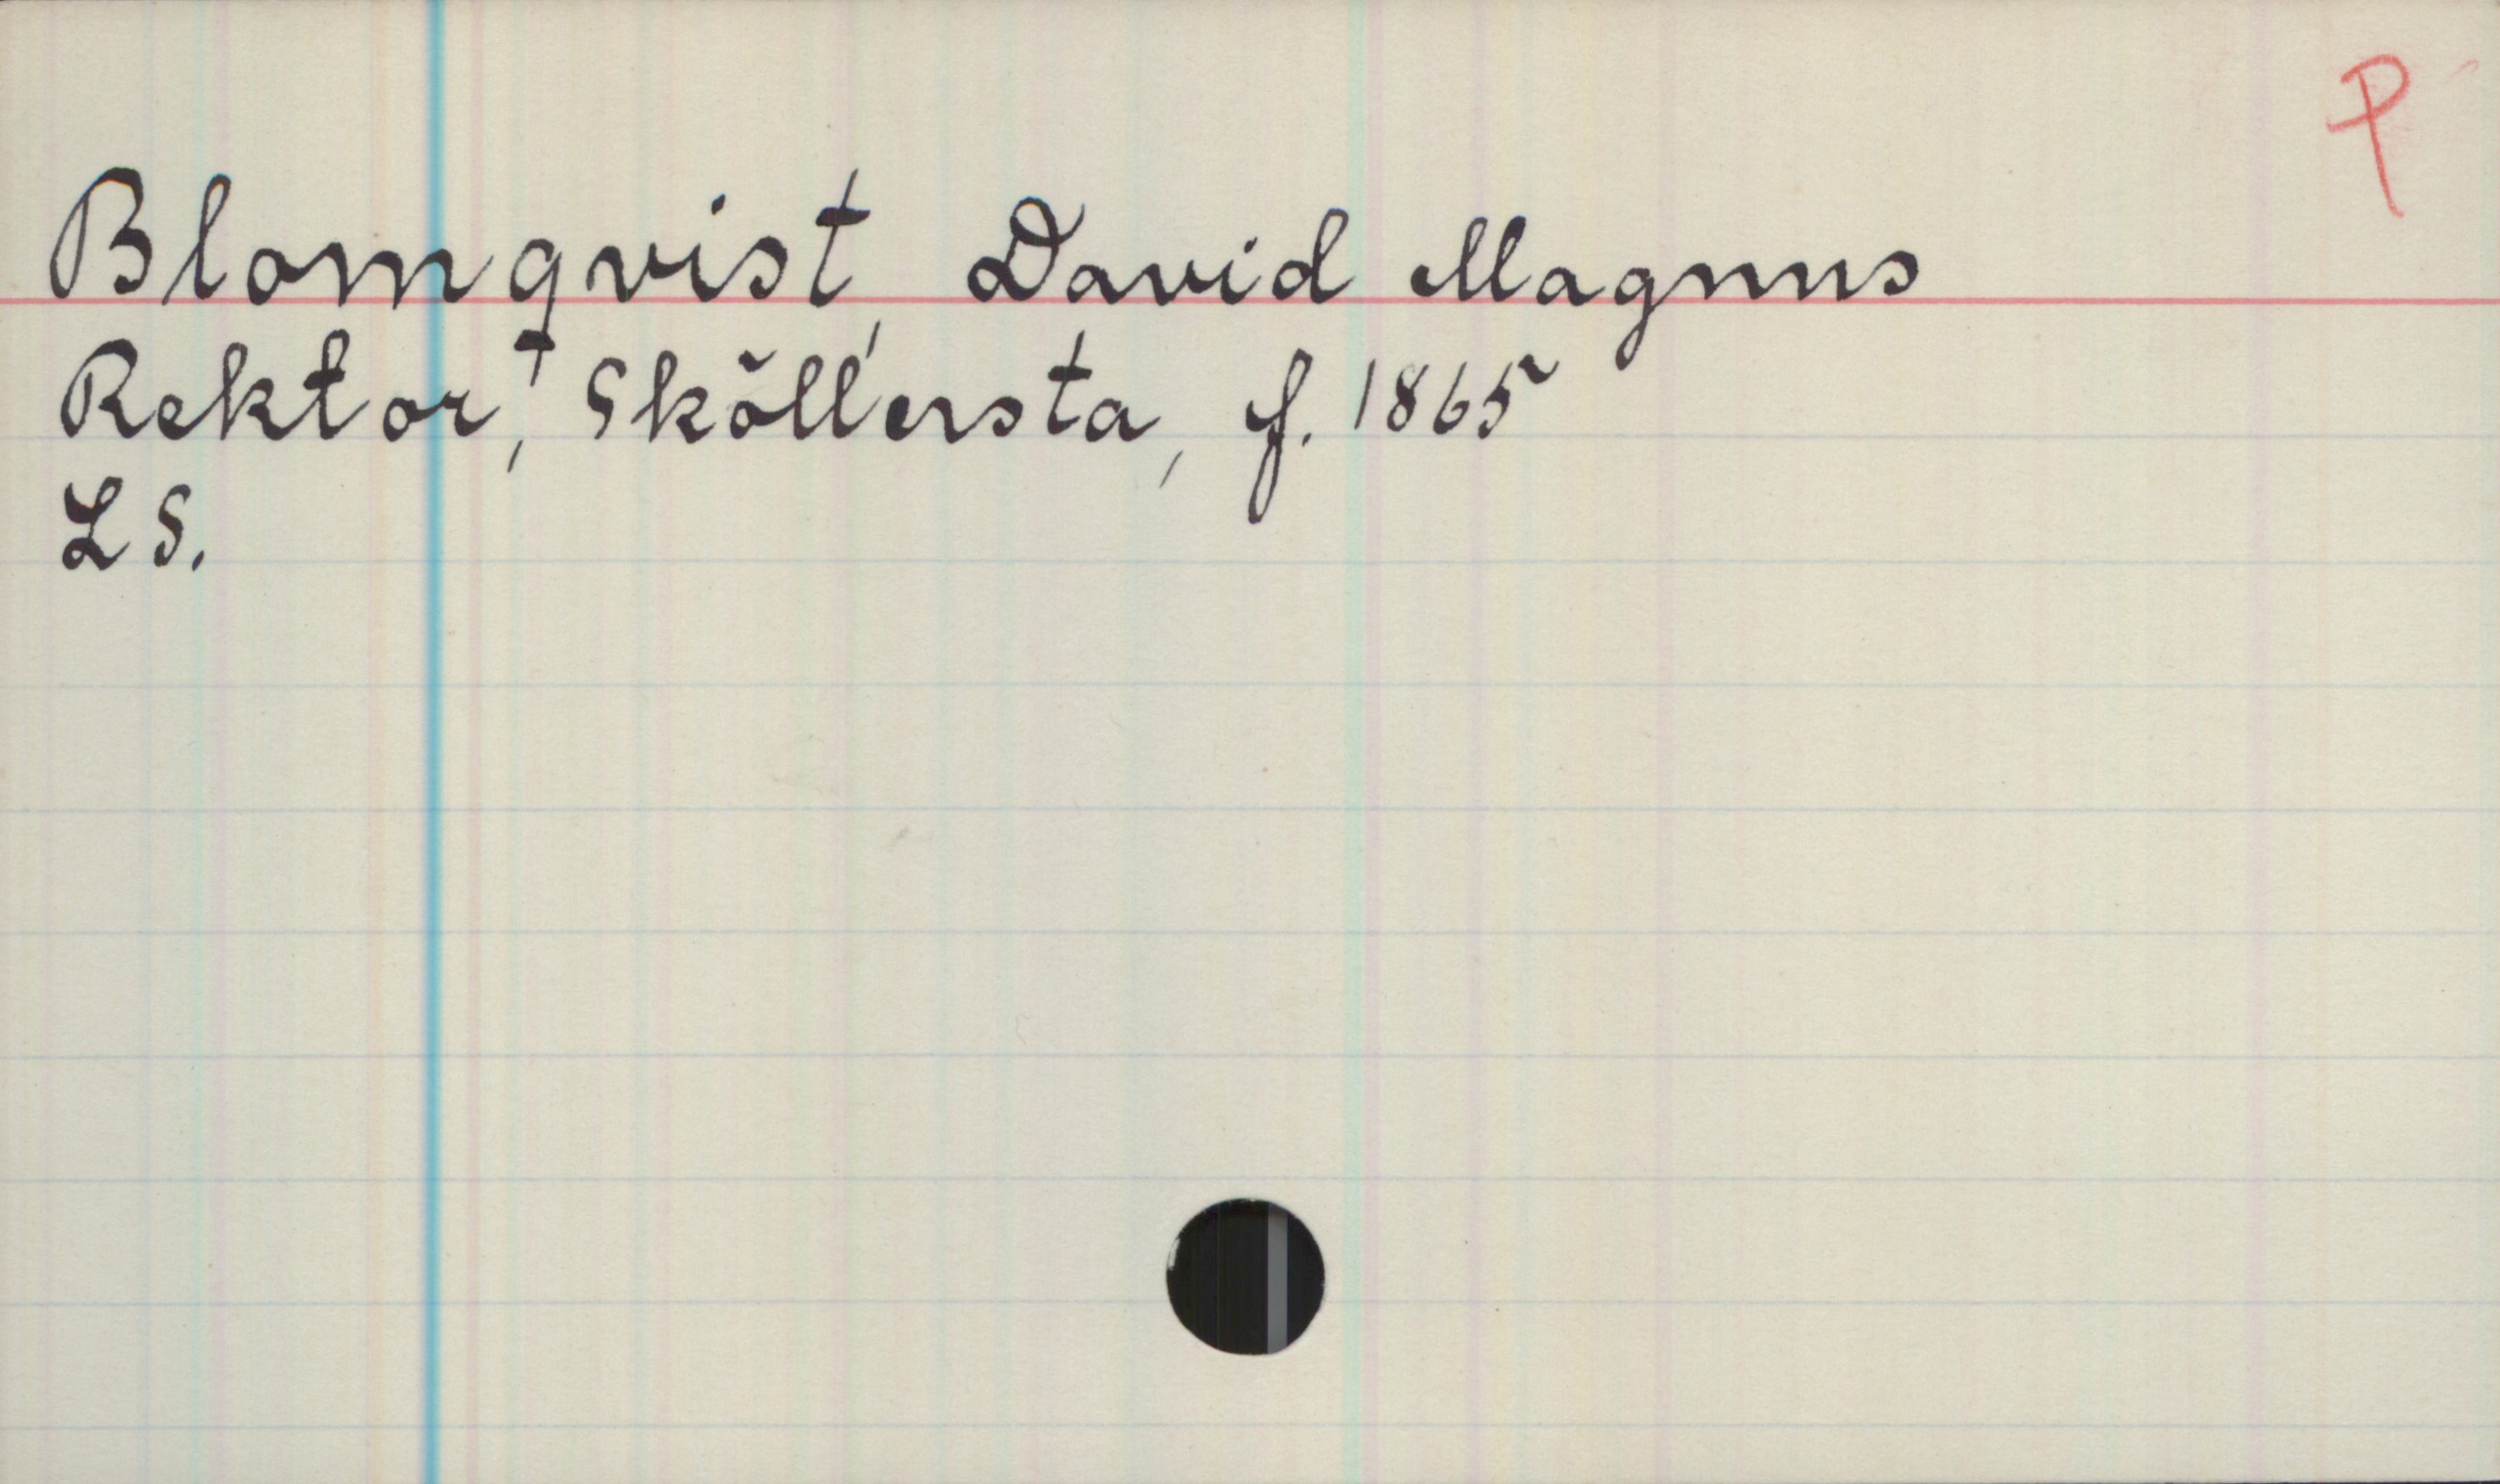 P
Blomqvist, David Magnus
Rektor, † Sköllersta, f. 1865
L S.